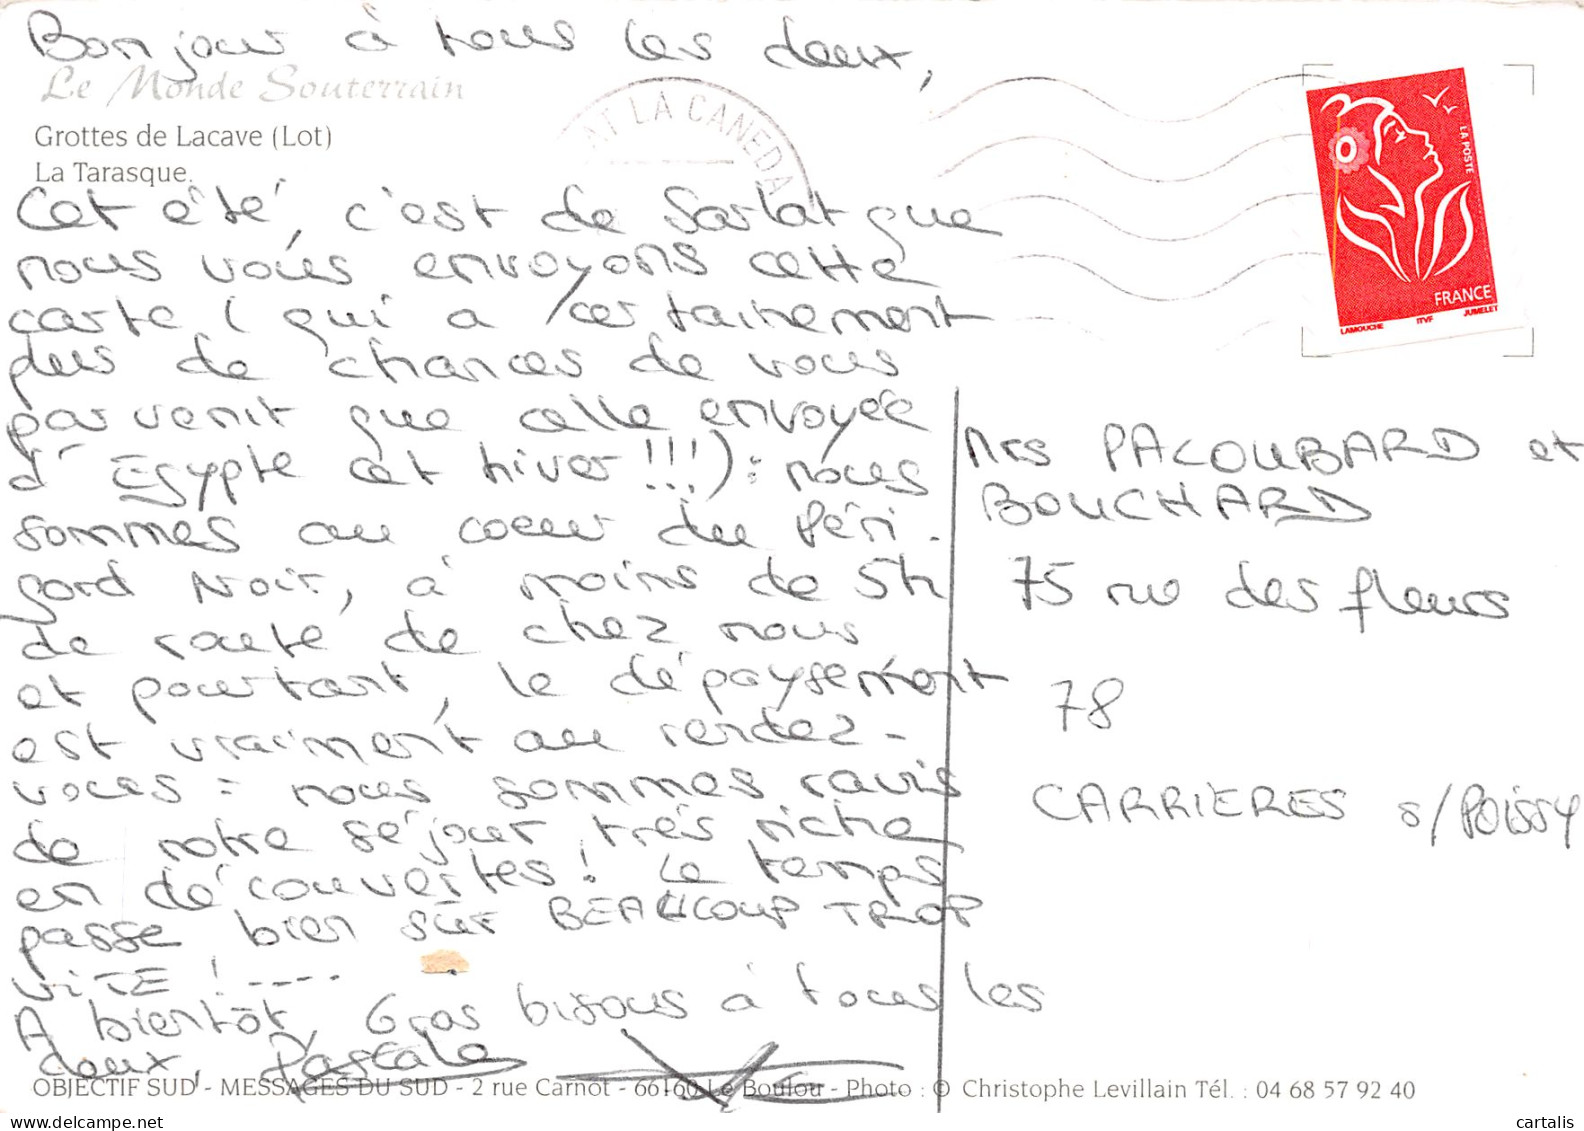 Bonjour à tous les deux,
Le Monde Souterrain
Grottes de Lacave (Lot)
La Tarasque.
AT LA CANEDA
LA POSTE
FRANCE
LAMOUCHE ITVF JUMELET
Cet été, c'est de Sarlat que
nous vous envoyons cette
carte (qui a certainement
plus de chances de vous
parvenir que celle envoyée
d'Egypte cet hiver !!!) : nous
sommes au coeur du Péri-
gord Noir, à moins de 5h
de route de chez nous
et pourtant, le dépaysement
est vraiment au rendez-
vous = nous sommes ravis
de notre séjour très riche
en découvertes ! Le temps
passe bien sûr BEAUCOUP TROP
VITE !----
A bientôt, Gros bisous à tous les
deux, Pascale
Mrs PACOUBARD et
BOUCHARD
75 rue des fleurs
78
CARRIERES s/POISSY
OBJECTIF SUD - MESSAGES DU SUD - 2 rue Carnot - 66160 Le Boulou - Photo : © Christophe Levillain Tél. : 04 68 57 92 40
cartalis